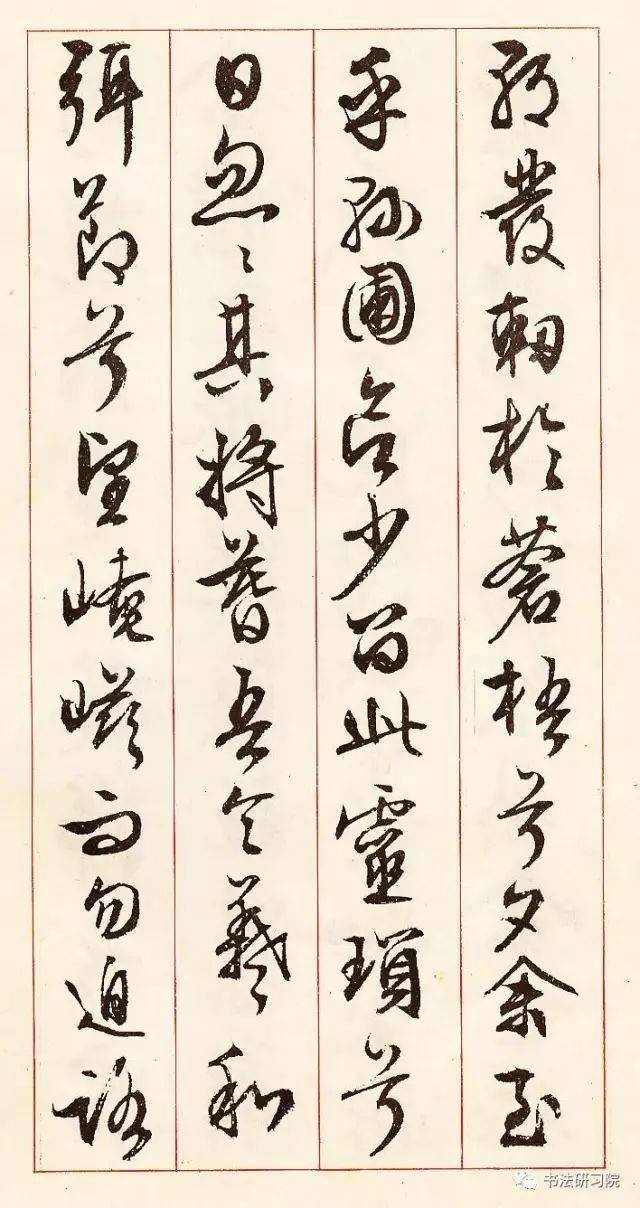 朝發軔於蒼梧兮夕余至
乎縣圃欲少留此靈瑣兮
日忽〻其將暮吾令羲和
弭節兮望崦嵫而勿迫路
书法研习院